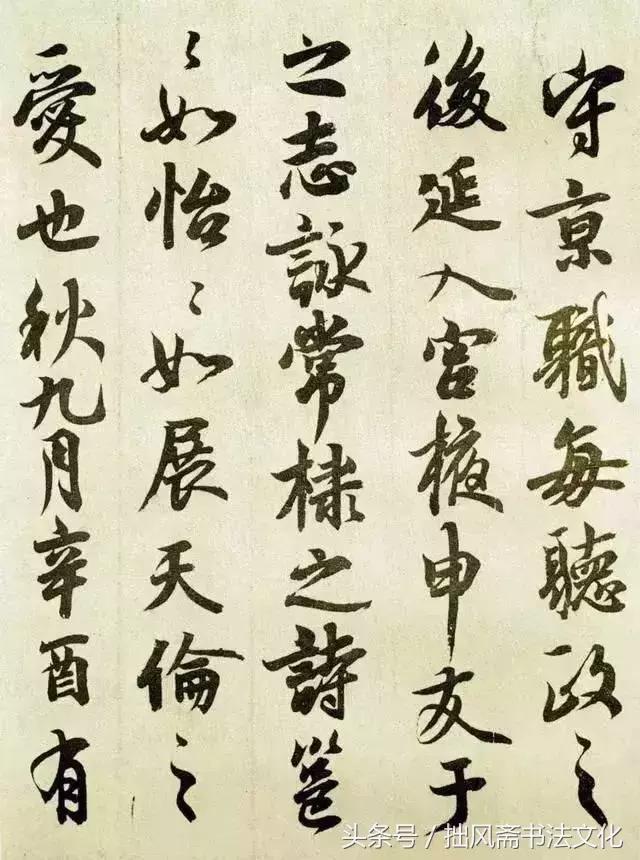 守京職每聽政之
後延入宮掖申友于
之志詠常棣之詩邕
〻如怡〻如展天倫之
愛也秋九月辛酉有
头条号/拙风斋书法文化